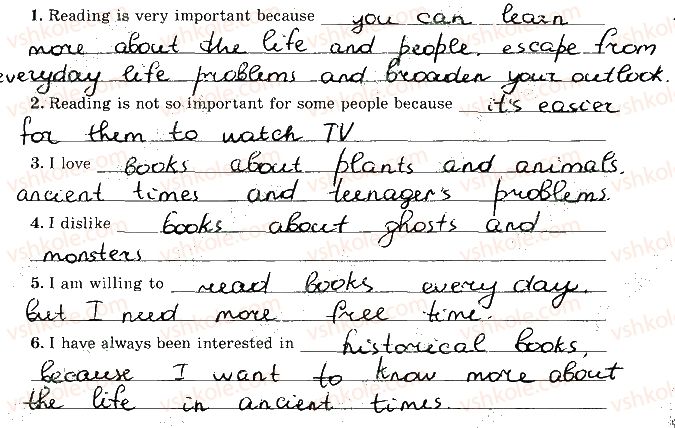 1. Reading is very important because you can learn
more about the life and people, escape from
everyday life problems and broaden your outlook.
2. Reading is not so important for some people because it's easier
for them to watch TV
3. I love books about plants and animals,
ancient times and teenager's problems.
4. I dislike books about ghosts and
monsters
5. I am willing to read books every day,
but I need more free time.
6. I have always been interested in historical books,
because I want to know more about
the life in ancient times.